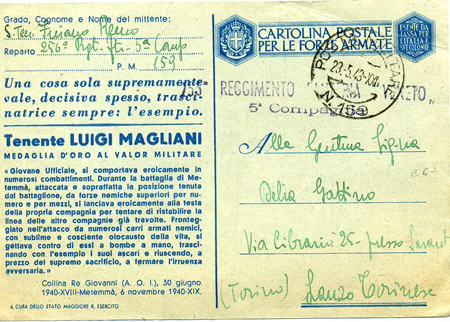 Grado, Cognome e Nome del mittente:
S. Ten. Furiano Remo
Reparto 256° Rgt. ftr. 5ª Comp
P. M. 159
Una cosa sola supremamente
vale, decisiva spesso, trasci-
natrice sempre: l'esempio.
Tenente LUIGI MAGLIANI
MEDAGLIA D'ORO AL VALOR MILITARE
«Giovane Ufficiale, si comportava eroicamente in
numerosi combattimenti. Durante la battaglia di Me-
temmà, attaccata e soprafatta la posizione tenuta
dal battaglione, da forze nemiche superiori per nu-
mero e per mezzi, si lanciava eroicamente alla testa
della propria compagnia per tentare di ristabilire la
linea delle altre compagnie già travolte. Fronteg-
giato nell'attacco da numerosi carri armati nemici, con
sublime e cosciente olocausto della vita, si
gettava contro di essi a bombe a mano, trasci-
nando con l'esempio i suoi ascari e riuscendo, a
prezzo del supremo sacrificio, a fermare l'irruenza
avversaria.»
Collina Re Giovanni (A. O. I.), 30 giugno
1940-XVIII-Metemmà, 6 novembre 1940-XIX.
A CURA DELLO STATO MAGGIORE R. ESERCITO
CARTOLINA POSTALE
PER LE FORZE ARMATE
ESEMPI DA
TASSA PER
L'ITALIA
E SUE COLONIE
POSTA MILITARE
23.5.43.XXI
N. 159
REGGIMENTO VENETO"
5ª Compagnia
Alla Gentma Sig.na
Delia Gattino
Via Cibrario 25 - presso
(Torino) Lanzo Torinese